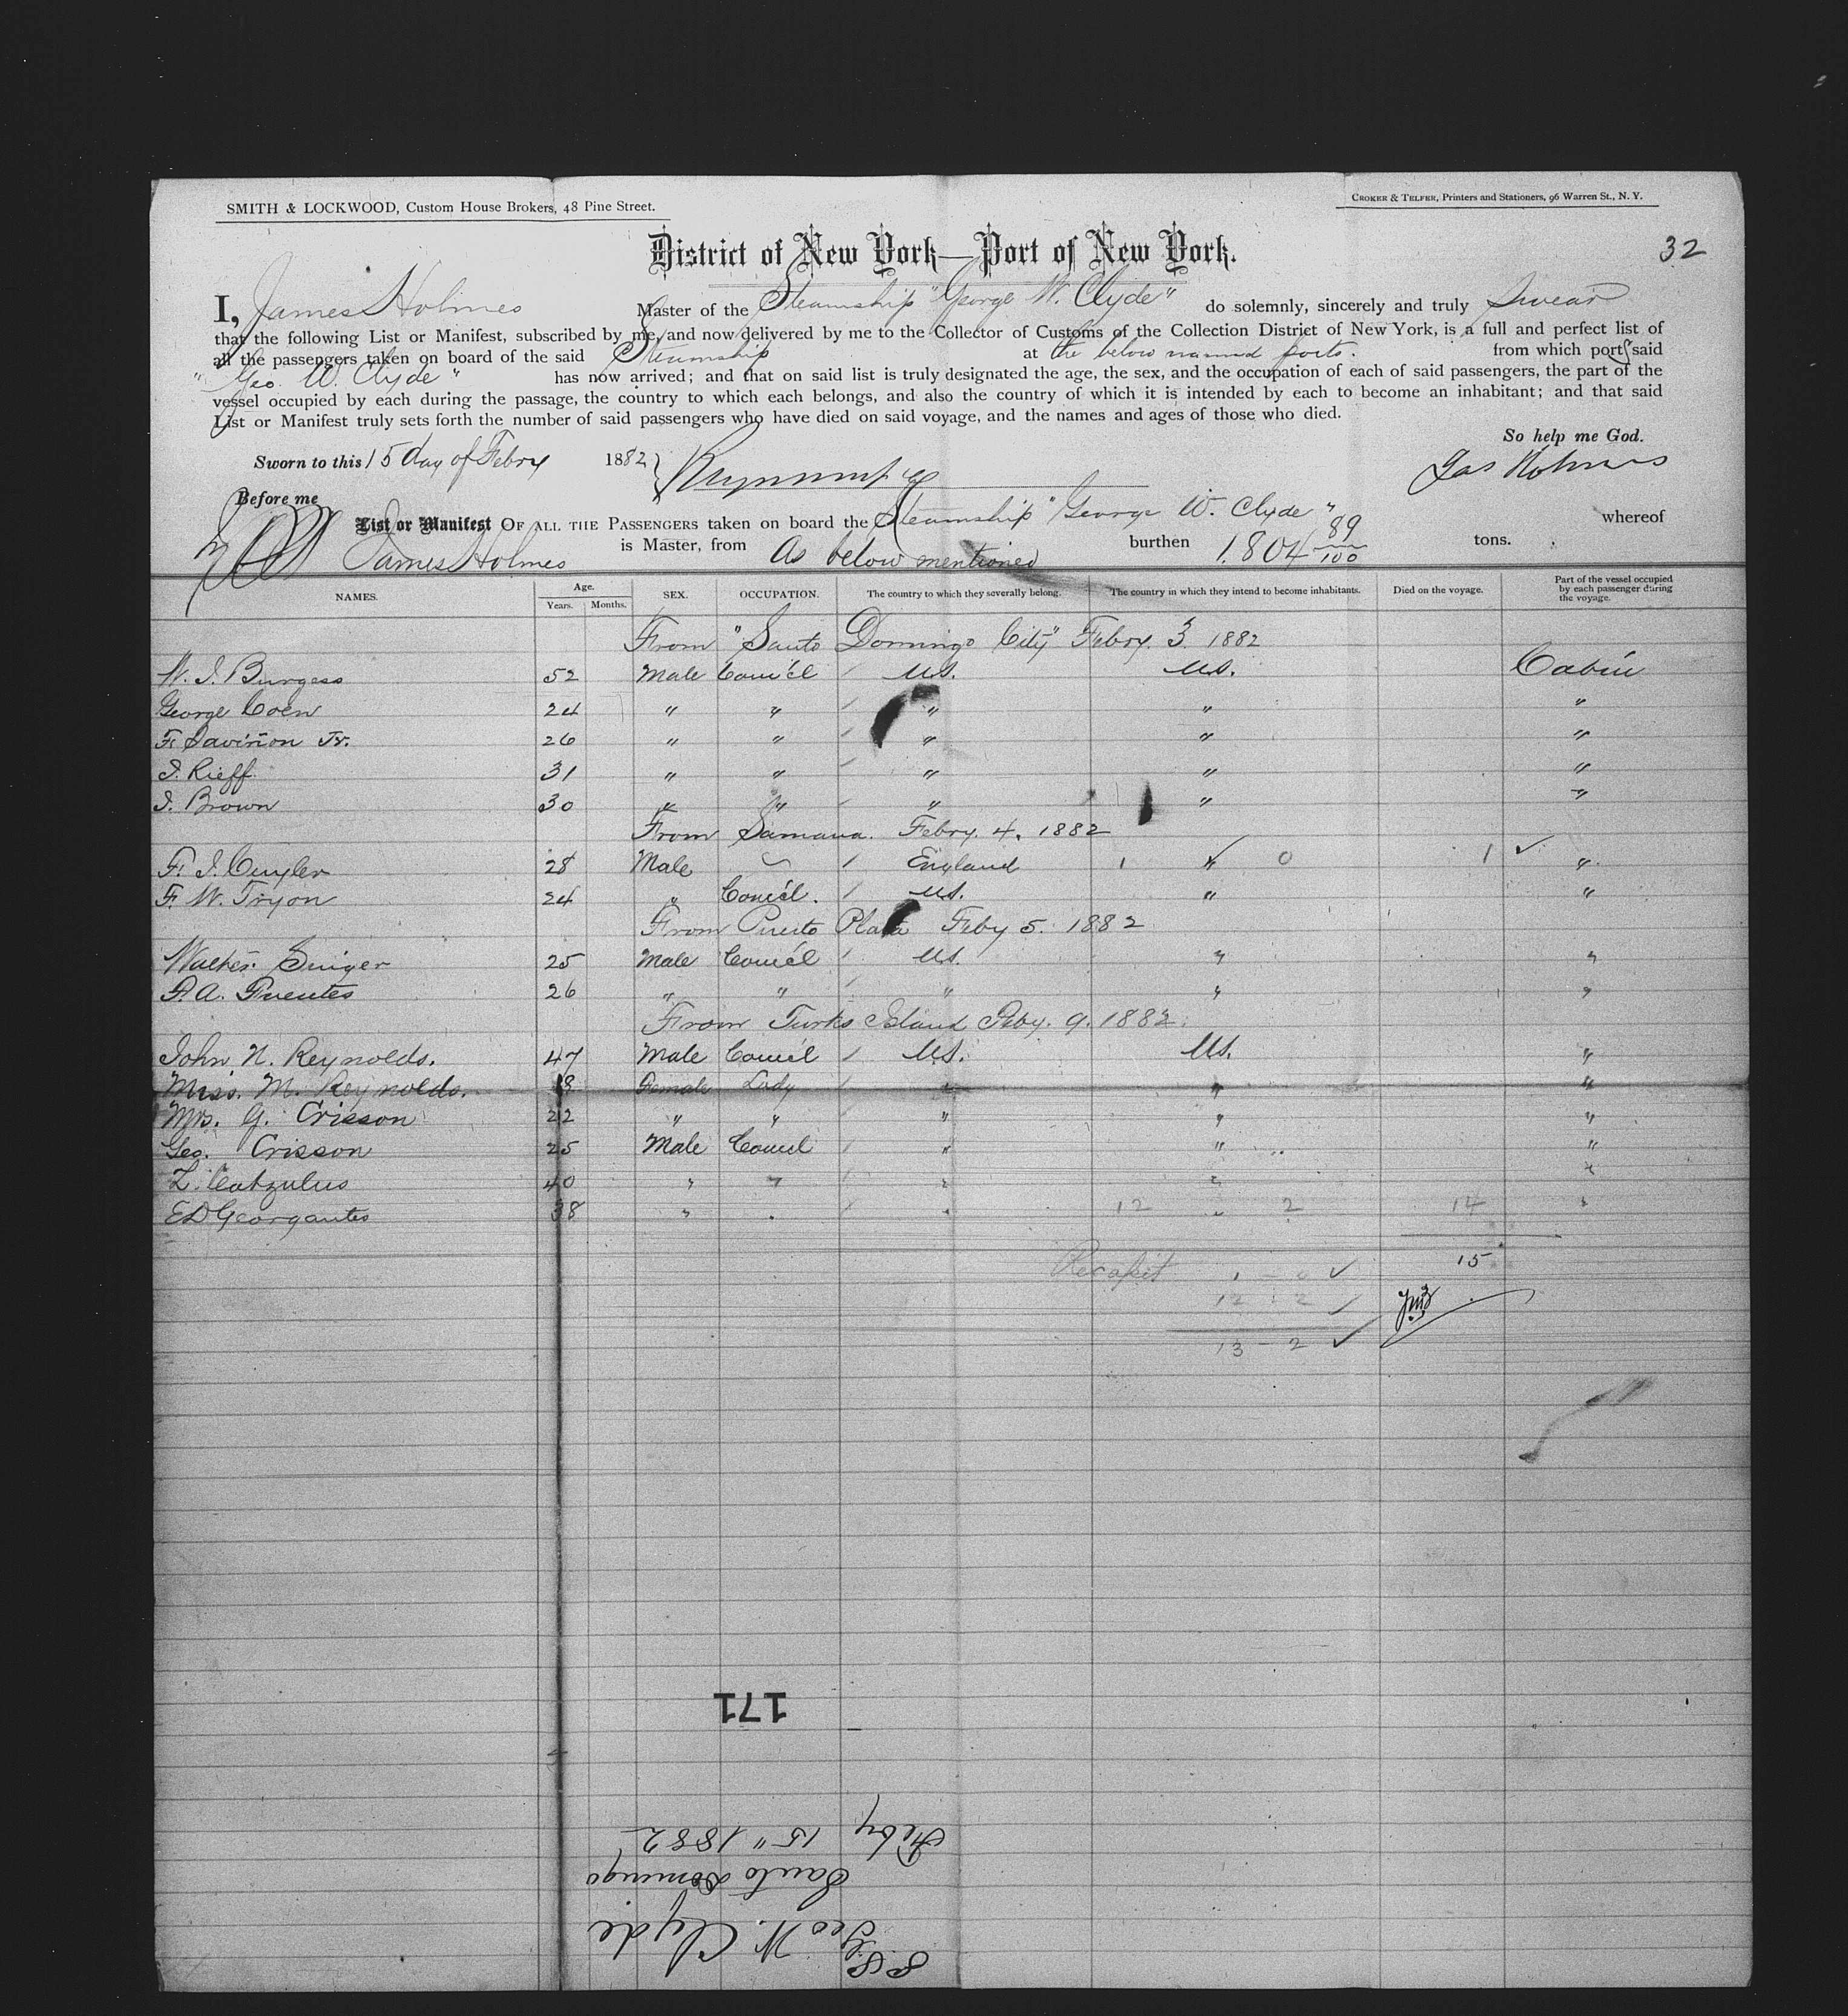 SMITH & LOCKWOOD, Custom House Brokers, 48 Pine Street.
CROKER & TELFER, Printers and Stationers, 96 Warren St., N. Y.
District of New York—Port of New York.
32
I, James Holmes Master of the Steamship "George W. Clyde" do solemnly, sincerely and truly Swear
that the following List or Manifest, subscribed by me, and now delivered by me to the Collector of Customs of the Collection District of New York, is a full and perfect list of
all the passengers taken on board of the said Steamship at the below named ports. from which ports said
"Geo. W. Clyde" has now arrived; and that on said list is truly designated the age, the sex, and the occupation of each of said passengers, the part of the
vessel occupied by each during the passage, the country to which each belongs, and also the country of which it is intended by each to become an inhabitant; and that said
List or Manifest truly sets forth the number of said passengers who have died on said voyage, and the names and ages of those who died.
So help me God.
Sworn to this 15 day of Febry 1882
Jas Holmes
Before me
List or Manifest OF ALL THE PASSENGERS taken on board the Steamship "George W. Clyde" whereof
James Holmes is Master, from As below mentioned burthen 1.804 89/100 tons.
NAMES. Age. Years. Months. SEX. OCCUPATION. The country to which they severally belong. The country in which they intend to become inhabitants. Died on the voyage. Part of the vessel occupied by each passenger during the voyage.
From "Santo Domingo City" Febry. 3. 1882
W. I. Burgess 52 Male Comi'cl U.S. U.S. Cabin
George Coen 24 " " " " "
F. Davison Jr. 26 " " " " "
I. Rieff 31 " " " " "
I. Brown 30 " " " " "
From Samana. Febry. 4. 1882
F. I. Cuyler 28 Male England 1 " 0 1 "
F. W. Tryon 24 " Comi'cl. U.S. " "
From Puerto Plata Feby 5. 1882
Walter Singer 25 Male Comi'cl U.S. " "
F. A. Fuentes 26 " " " " "
From Turks Island Feby. 9. 1882.
John N. Reynolds. 47 Male Comi'cl U.S. U.S. "
Miss. M. Reynolds. 18 Female Lady " " "
Mrs. G. Crisson 22 " " " " "
Geo. Crisson 25 Male Comi'cl " " "
40 " " " " "
E D Georgantes 38 " " " 12 " 2 14 "
Recapit 1 - 0 15
12 - 2
13 - 2
171
S.S.
Geo W. Clyde
Santo Domingo
Feby 15" 1882